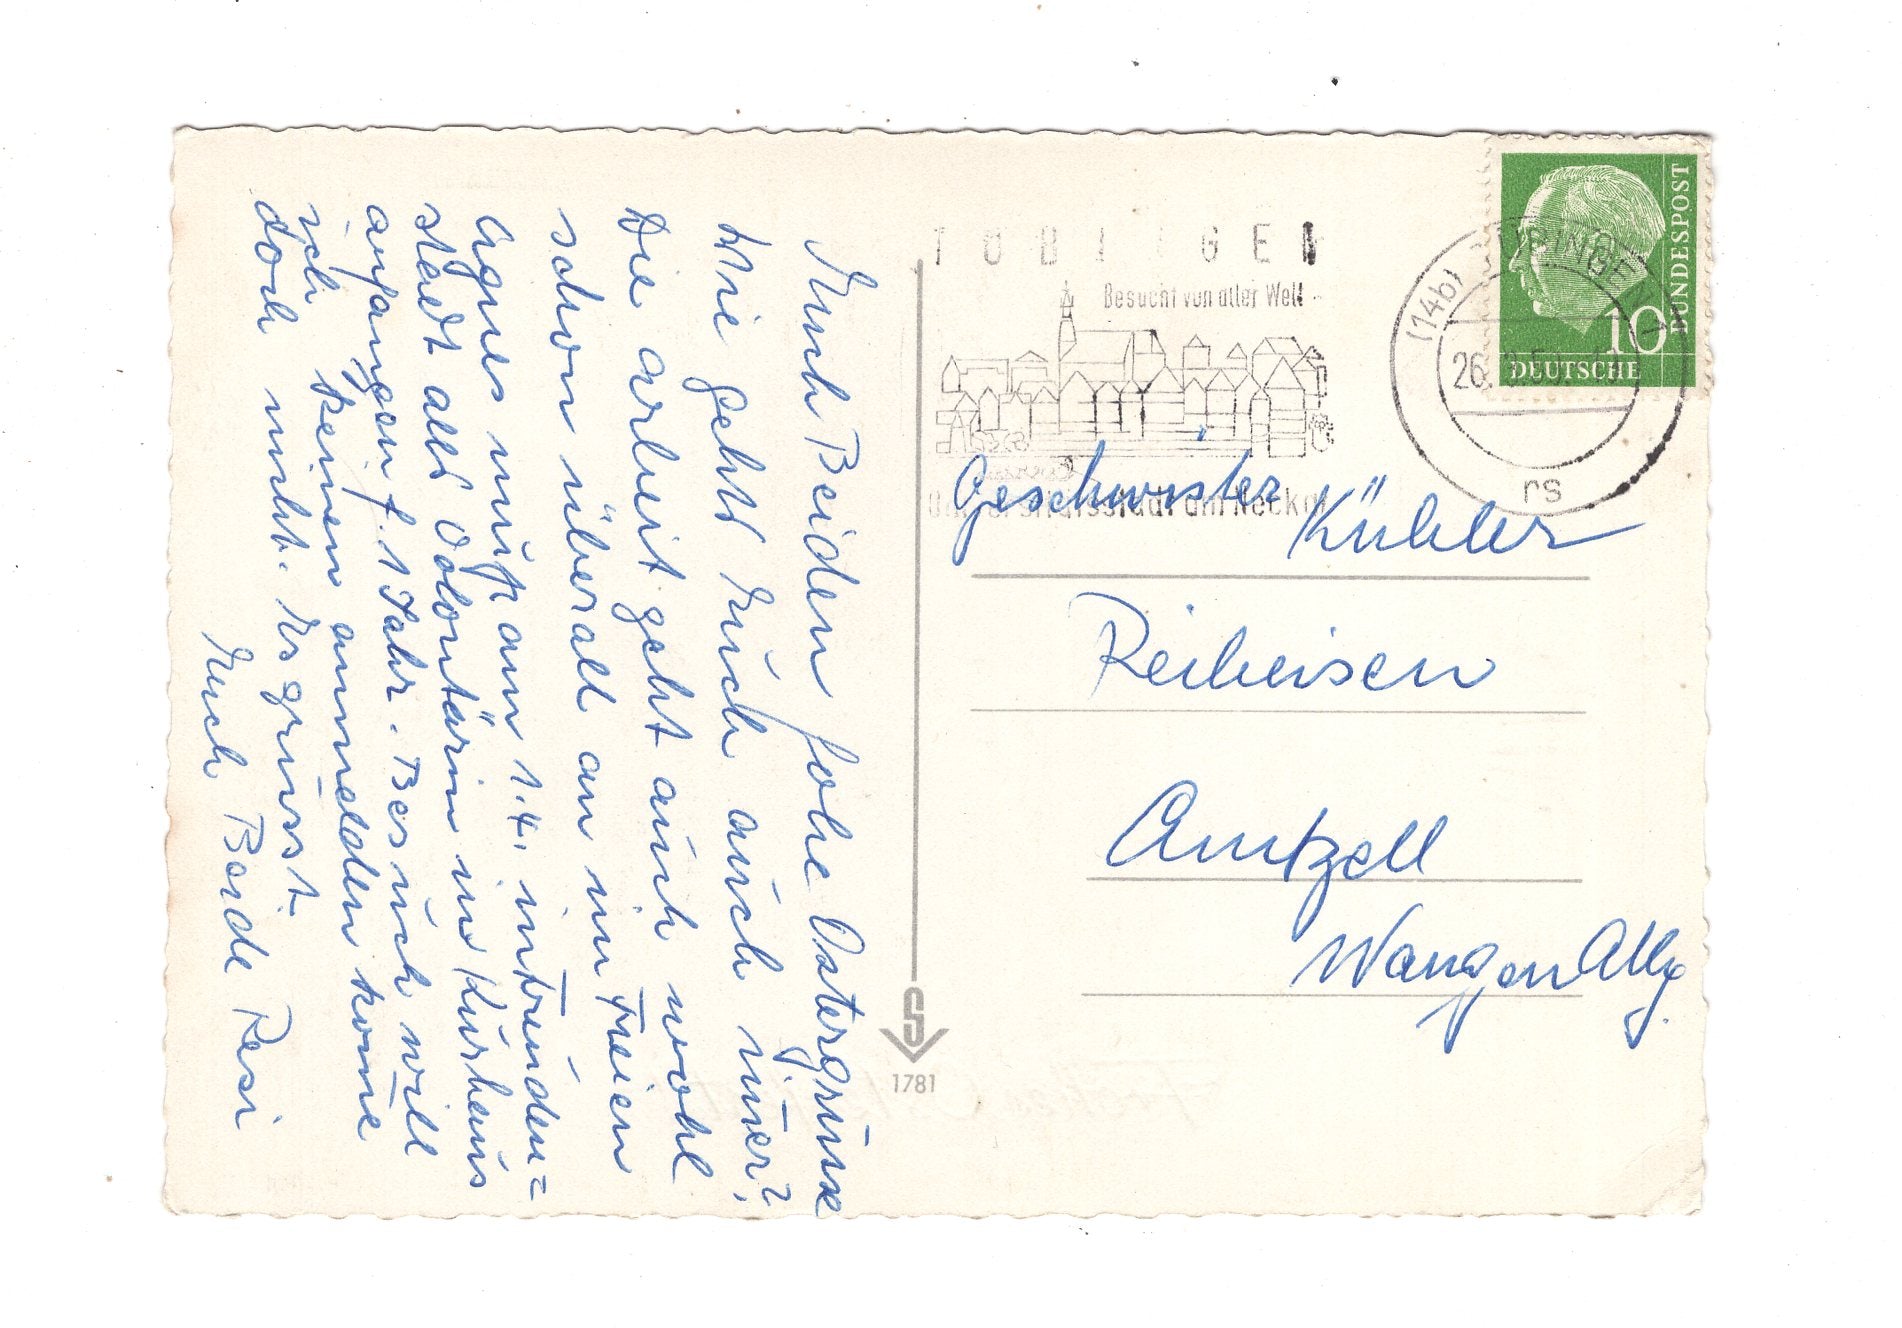 Euch Beiden frohe Ostergrüsse
Wie geht's Euch auch immer?
Die arbeit geht auch wohl
schon überall an im Freien
Agnes muß am 1.4. in
statt als Volontärin ins Kurhaus
anfangen f. 1 Jahr. Besuch will
ich keinen anmelden kome
doch nicht. Es grüsst
Euch Beide Resi
TÜBINGEN
Besucht von aller Welt -
Universitätsstadt am Neckar
(14b) TÜBINGEN 1
26.3.59
rs
DEUTSCHE
BUNDESPOST
10
Geschwister
Kühler
Reibeisen
Amtzell
Wangen Allg.
S
1781